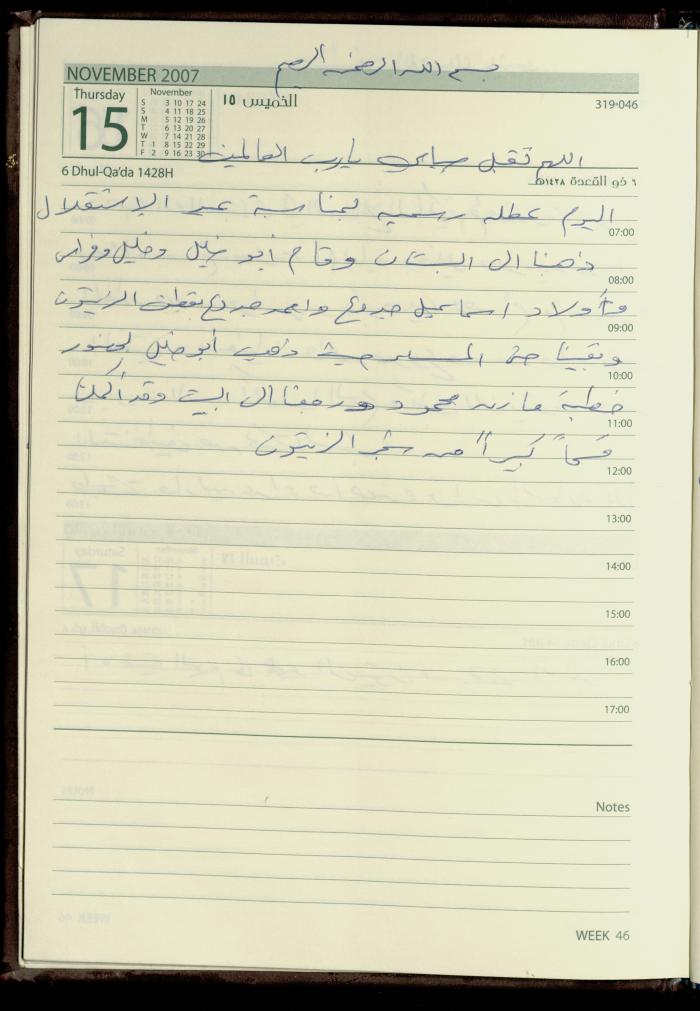 بسم الله الرحمن الرحيم
NOVEMBER 2007
Thursday
15
November
S 3 10 17 24
S 4 11 18 25
M 5 12 19 26
T 6 13 20 27
W 7 14 21 28
T 1 8 15 22 29
F 2 9 16 23 30
الخميس ١٥
319-046
اللهم تقبل صيامي يارب العالمين
6 Dhul-Qa'da 1428H
٦ ذو القعدة ١٤٢٨هـ
اليوم عطله رسميه بمناسبة عيد الاستقلال
07:00
ذهبنا الى البستان وقام أبو خليل وخليل وفراس
08:00
وأولاد اسماعيل جدوع واحمد جدوع بقطف الزيتون
09:00
وبقينا حتى المساء حيث ذهب أبو خليل لحضور
10:00
خطبة مازن محمود ورجعنا الى البيت وقد أكملنا
11:00
قسماً كبيراً من شجر الزيتون
12:00
13:00
14:00
15:00
16:00
17:00
Notes
WEEK 46